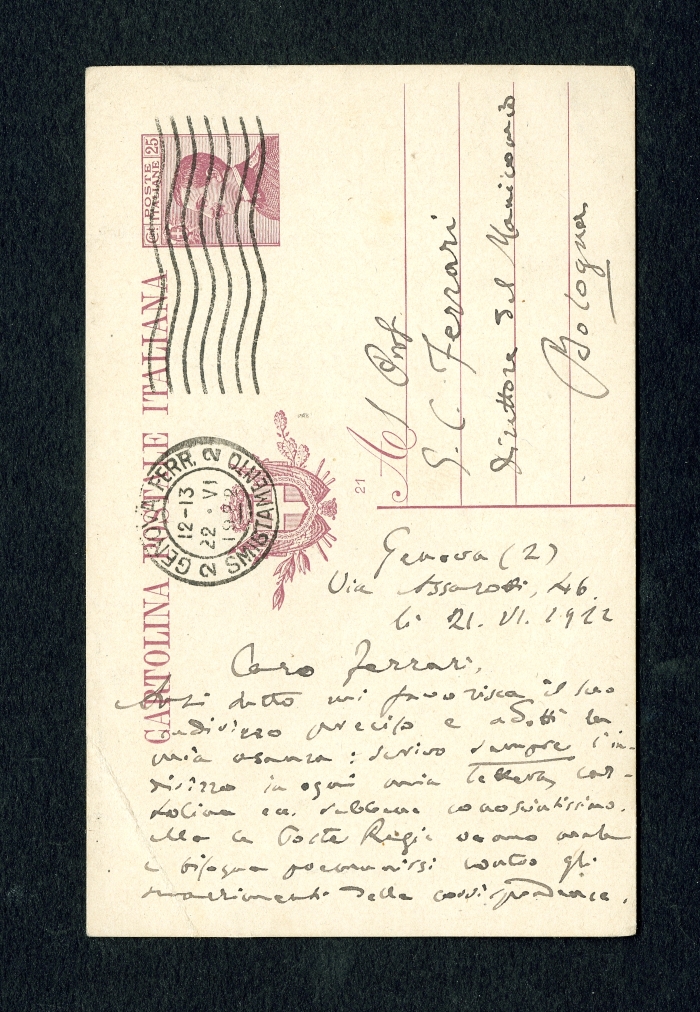 CARTOLINA POSTALE ITALIANA
POSTE
ITALIANE
25
GENOVA FERR. 2
12-13
22 · VI
SMISTAMENTO 2
21
Al Prof
G. C. Ferrari
direttore del Manicomio
Bologna
Genova (2)
Via Assarotti, 46
li 21. VI. 1922
Caro Ferrari,
tutto mi favorisca il suo
indirizzo preciso e adotti la
mia usanza: scrivo sempre l'in-
dirizzo in ogni mia lettera, car-
tolina ecc. sebbene conosciutissimo.
Le Poste Regie vanno male
e bisogna premunirsi contro gli
smarrimenti della corrispondenza.